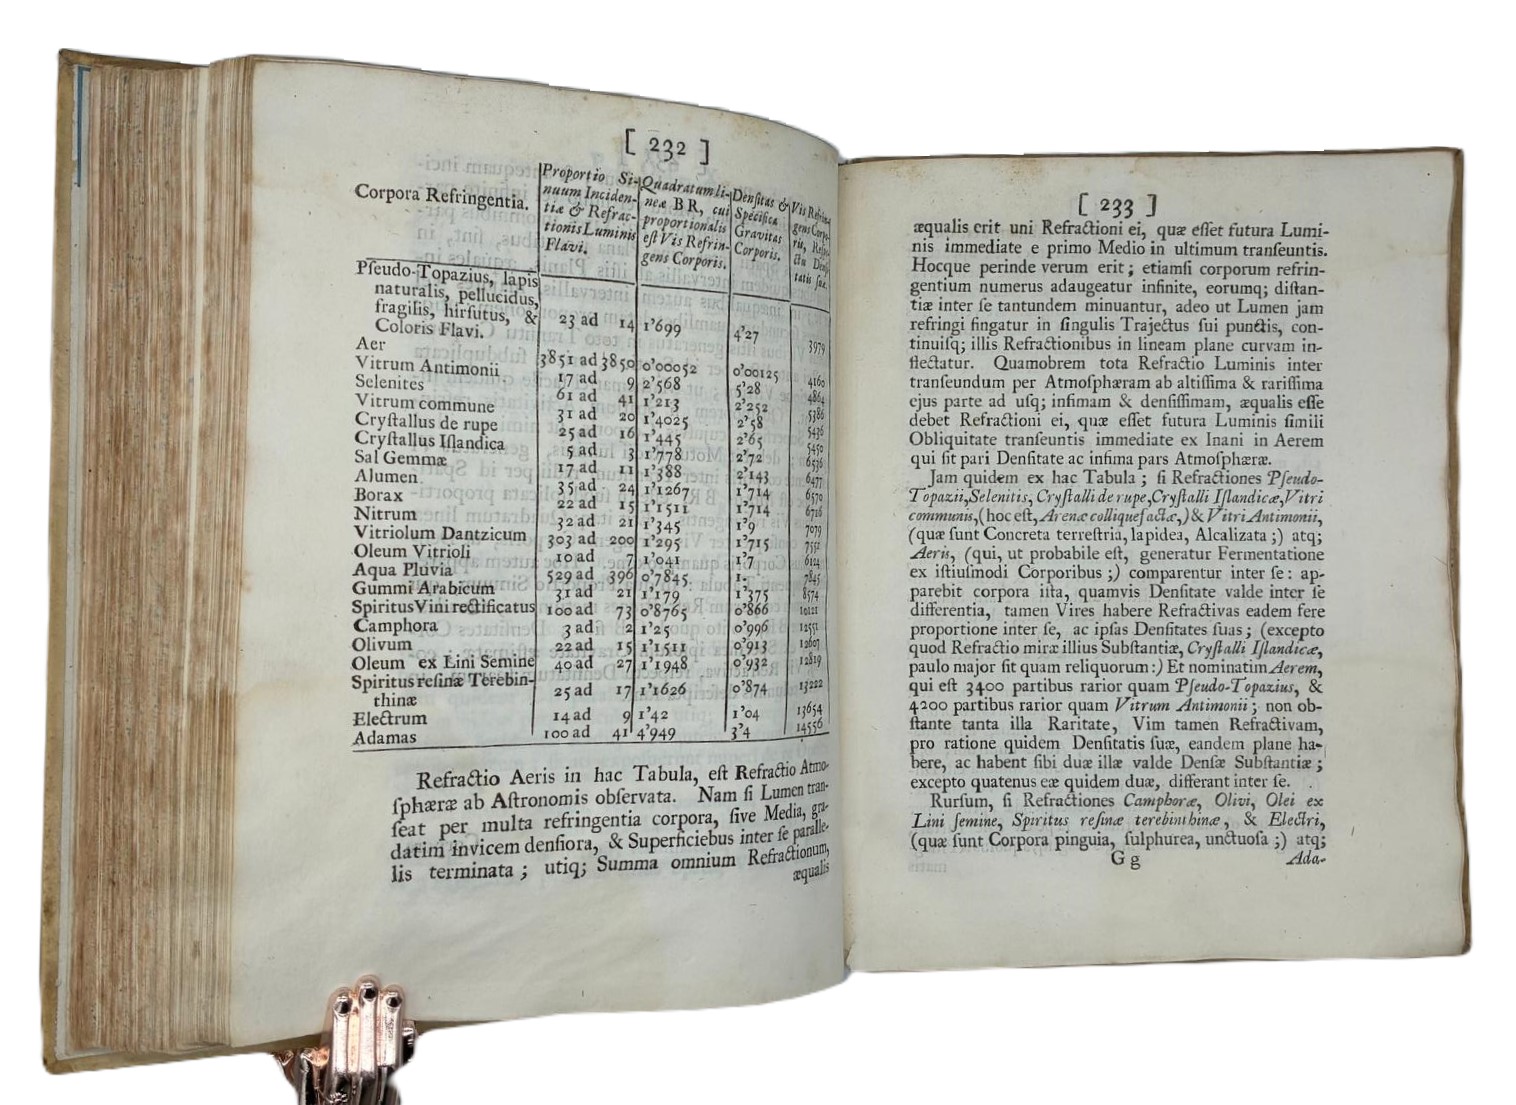 [ 232 ]
Corpora Refringentia. Proportio Sinuum Incidentiæ & Refractionis Luminis Flavi. Quadratum lineæ BR, cui proportionalis eſt Vis Refringens Corporis. Denſitas & Specifica Gravitas Corporis. Vis Refringens Corporis, Reſpectu Denſitatis ſuæ.
Pſeudo-Topazius, lapis
naturalis, pellucidus,
fragilis, hirſutus, &
Coloris Flavi. 23 ad 14 1'699 4'27 3979
Aer 3851 ad 3850 0'00052 0'00125 4160
Vitrum Antimonii 17 ad 9 2'568 5'28 4864
Selenites 61 ad 41 1'213 2'252 5386
Vitrum commune 31 ad 20 1'4025 2'58 5436
Cryſtallus de rupe 25 ad 16 1'445 2'65 5450
Cryſtallus Iſlandica 5 ad 3 1'778 2'72 6536
Sal Gemmæ 17 ad 11 1'388 2'143 6477
Alumen 35 ad 24 1'1267 1'714 6570
Borax 22 ad 15 1'1511 1'714 6716
Nitrum 32 ad 21 1'345 1'9 7079
Vitriolum Dantzicum 303 ad 200 1'295 1'715 7551
Oleum Vitrioli 10 ad 7 1'041 1'7 6124
Aqua Pluvia 529 ad 396 0'7845 1. 7845
Gummi Arabicum 31 ad 21 1'179 1'375 8574
Spiritus Vini rectificatus 100 ad 73 0'8765 0'866 10121
Camphora 3 ad 2 1'25 0'996 12551
Olivum 22 ad 15 1'1511 0'913 12607
Oleum ex Lini Semine 40 ad 27 1'1948 0'932 12819
Spiritus reſinæ Terebin-
thinæ 25 ad 17 1'1626 0'874 13222
Electrum 14 ad 9 1'42 1'04 13654
Adamas 100 ad 41 4'949 3'4 14556
Refractio Aeris in hac Tabula, eſt Refractio Atmo-
ſphæræ ab Aſtronomis obſervata. Nam ſi Lumen tran-
ſeat per multa refringentia corpora, ſive Media, gra-
datim invicem denſiora, & Superficiebus inter ſe paralle-
lis terminata ; utiq; Summa omnium Refractionum,
æqualis
[ 233 ]
æqualis erit uni Refractioni ei, quæ eſſet futura Lumi-
nis immediate e primo Medio in ultimum tranſeuntis.
Hocque perinde verum erit ; etiamſi corporum refrin-
gentium numerus adaugeatur infinite, eorumq; diſtan-
tiæ inter ſe tantundem minuantur, adeo ut Lumen jam
refringi fingatur in ſingulis Trajectus ſui punctis, con-
tinuiſq; illis Refractionibus in lineam plane curvam in-
flectatur. Quamobrem tota Refractio Luminis inter
tranſeundum per Atmoſphæram ab altiſſima & rariſſima
ejus parte ad uſq; infimam & denſiſſimam, æqualis eſſe
debet Refractioni ei, quæ eſſet futura Luminis ſimili
Obliquitate tranſeuntis immediate ex Inani in Aerem
qui ſit pari Denſitate ac infima pars Atmoſphæræ.
Jam quidem ex hac Tabula ; ſi Refractiones Pſeudo-
Topazii, Selenitis, Cryſtalli de rupe, Cryſtalli Iſlandicæ, Vitri
communis, (hoc eſt, Arenæ colliquefactæ,) & Vitri Antimonii,
(quæ ſunt Concreta terreſtria, lapidea, Alcalizata ;) atq;
Aeris, (qui, ut probabile eſt, generatur Fermentatione
ex iſtiuſmodi Corporibus ;) comparentur inter ſe : ap-
parebit corpora iſta, quamvis Denſitate valde inter ſe
differentia, tamen Vires habere Refractivas eadem fere
proportione inter ſe, ac ipſas Denſitates ſuas ; (excepto
quod Refractio miræ illius Subſtantiæ, Cryſtalli Iſlandicæ,
paulo major ſit quam reliquorum :) Et nominatim Aerem,
qui eſt 3400 partibus rarior quam Pſeudo-Topazius, &
4200 partibus rarior quam Vitrum Antimonii ; non ob-
ſtante tanta illa Raritate, Vim tamen Refractivam,
pro ratione quidem Denſitatis ſuæ, eandem plane ha-
bere, ac habent ſibi duæ illæ valde Denſæ Subſtantiæ ;
excepto quatenus eæ quidem duæ, differant inter ſe.
Rurſum, ſi Refractiones Camphoræ, Olivi, Olei ex
Lini ſemine, Spiritus reſinæ terebinthinæ, & Electri,
(quæ ſunt Corpora pinguia, ſulphurea, unctuoſa ;) atq;
G g Ada-